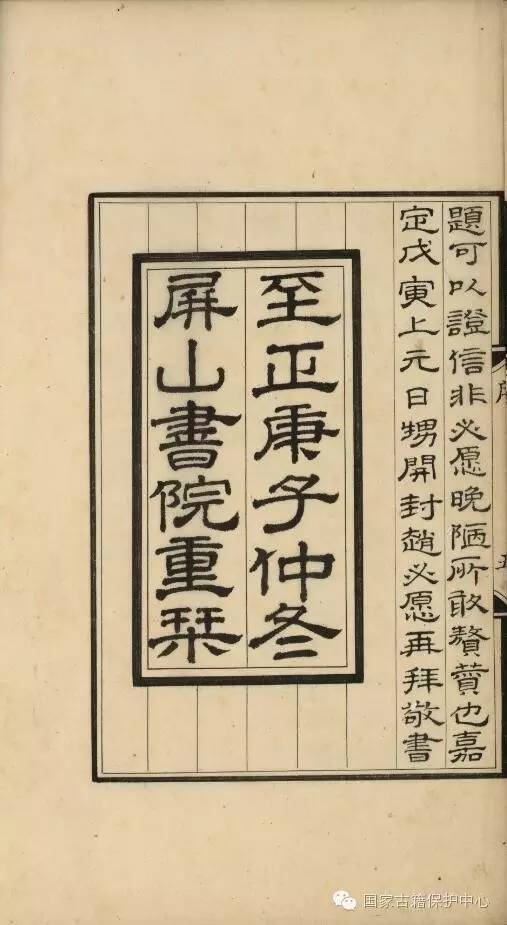 題可以證信非必愿晚陋所敢贅贊也嘉
定戊寅上元日甥開封趙必愿再拜敬書
至正庚子仲冬
屏山書院重栞
国家古籍保护中心